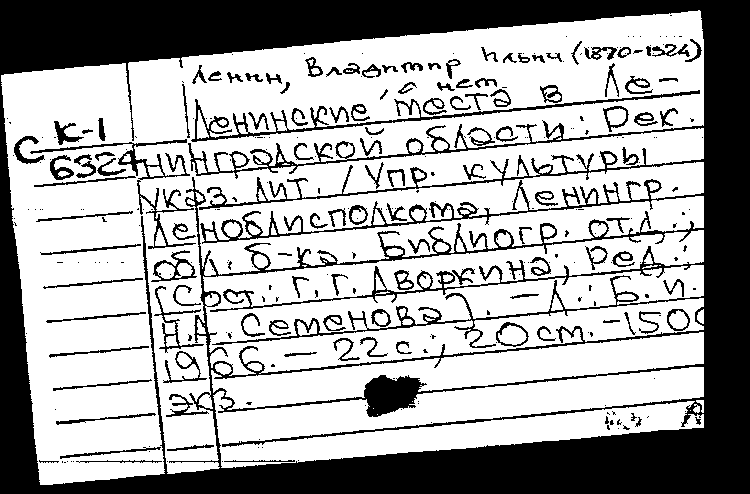 Ленин, Владимир Ильич (1870-1924)
о нем
Ленинские места в Ле-
С К-1
6324
нинградской области: Рек.
указ. лит. / Упр. культуры
Леноблисполкома, Ленингр.
обл. б-ка. Библиогр. отд.;
[Сост.: Г.Г. Дворкина; Ред.:
Н.А. Семенова]. – Л.: Б.и.
1966. – 22 с.; 20 см. – 1500
экз.